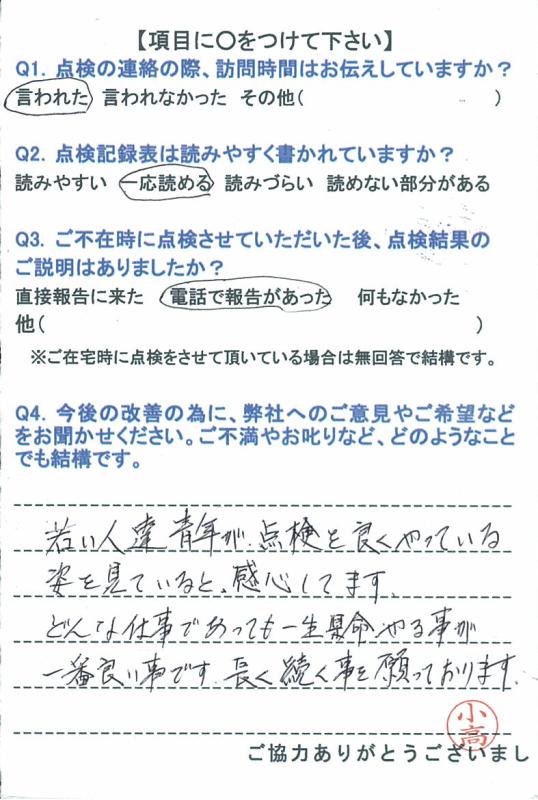 【項目に〇をつけて下さい】
Q1. 点検の連絡の際、訪問時間はお伝えしていますか？
言われた 言われなかった その他( )
Q2. 点検記録表は読みやすく書かれていますか？
読みやすい 一応読める 読みづらい 読めない部分がある
Q3. ご不在時に点検させていただいた後、点検結果の
ご説明はありましたか？
直接報告に来た 電話で報告があった 何もなかった
他( )
※ご在宅時に点検をさせて頂いている場合は無回答で結構です。
Q4. 今後の改善の為に、弊社へのご意見やご希望など
をお聞かせください。ご不満やお叱りなど、どのようなこと
でも結構です。
若い人達 青年が 点検を良くやっている
姿を見ていると、感心してます。
どんな仕事であっても一生懸命やる事が
一番良い事です。長く続く事を願っております。
小高
ご協力ありがとうございまし